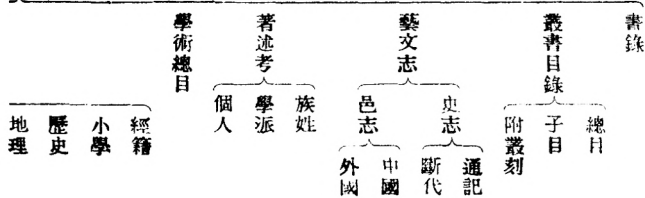 書錄
叢書目錄
總目
子目
附叢刻
藝文志
史志
通記
斷代
邑志
中國
外國
著述考
族姓
學派
個人
學術總目
經籍
小學
歷史
地理